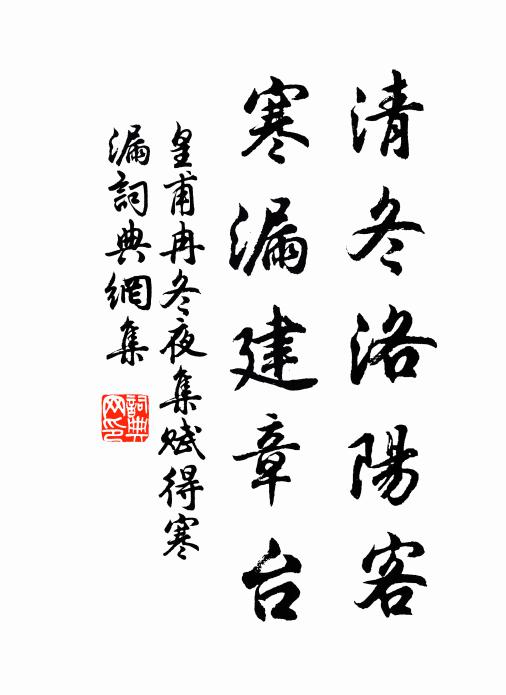 清冬洛陽客
寒漏建章台
皇甫冉冬夜集賦得寒
漏詞典網集
詞典
网印